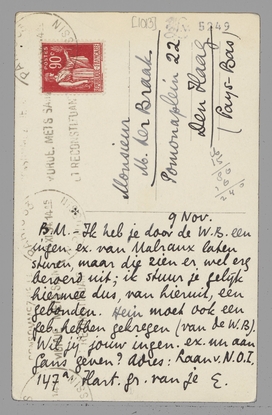 [1013]
5249
90c
Monsieur
M. ter Braak
Pomonaplein 22
Den Haag
(Pays-Bas)
9 Nov.
B.M. Ik heb je door de W.B. een
ingen. ex. van Malraux laten
sturen, maar die zien er wel erg
beroerd uit; ik stuur je gelijk
hiermee dus, van hieruit, een
gebonden. Hein moet ook een
geb. hebben gekregen (van de W.B.)
Wil je jouw ingen. ex. nu aan
Gans geven? Adres: Laan v. N.O.I.
147a Hart. gr. van je E.